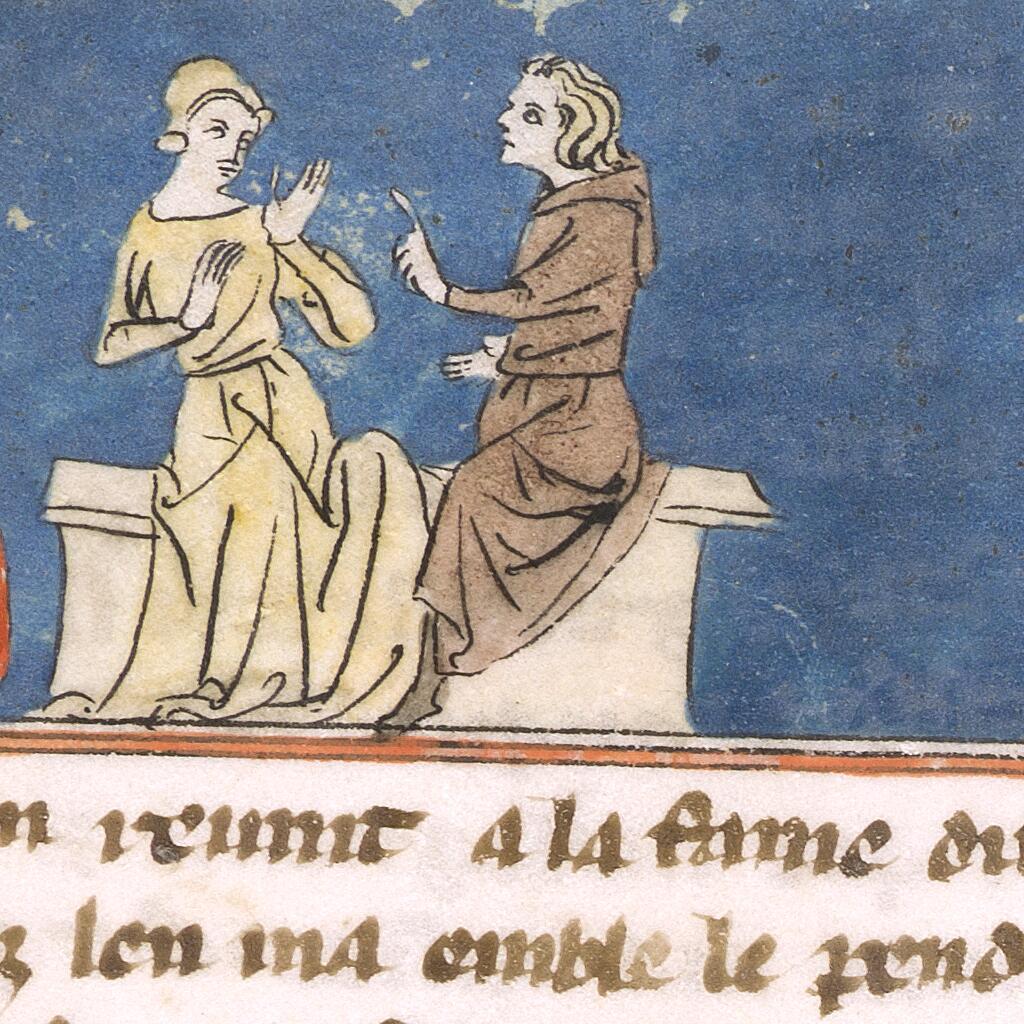 n ixunt a la fame du
z len ma emble le pend